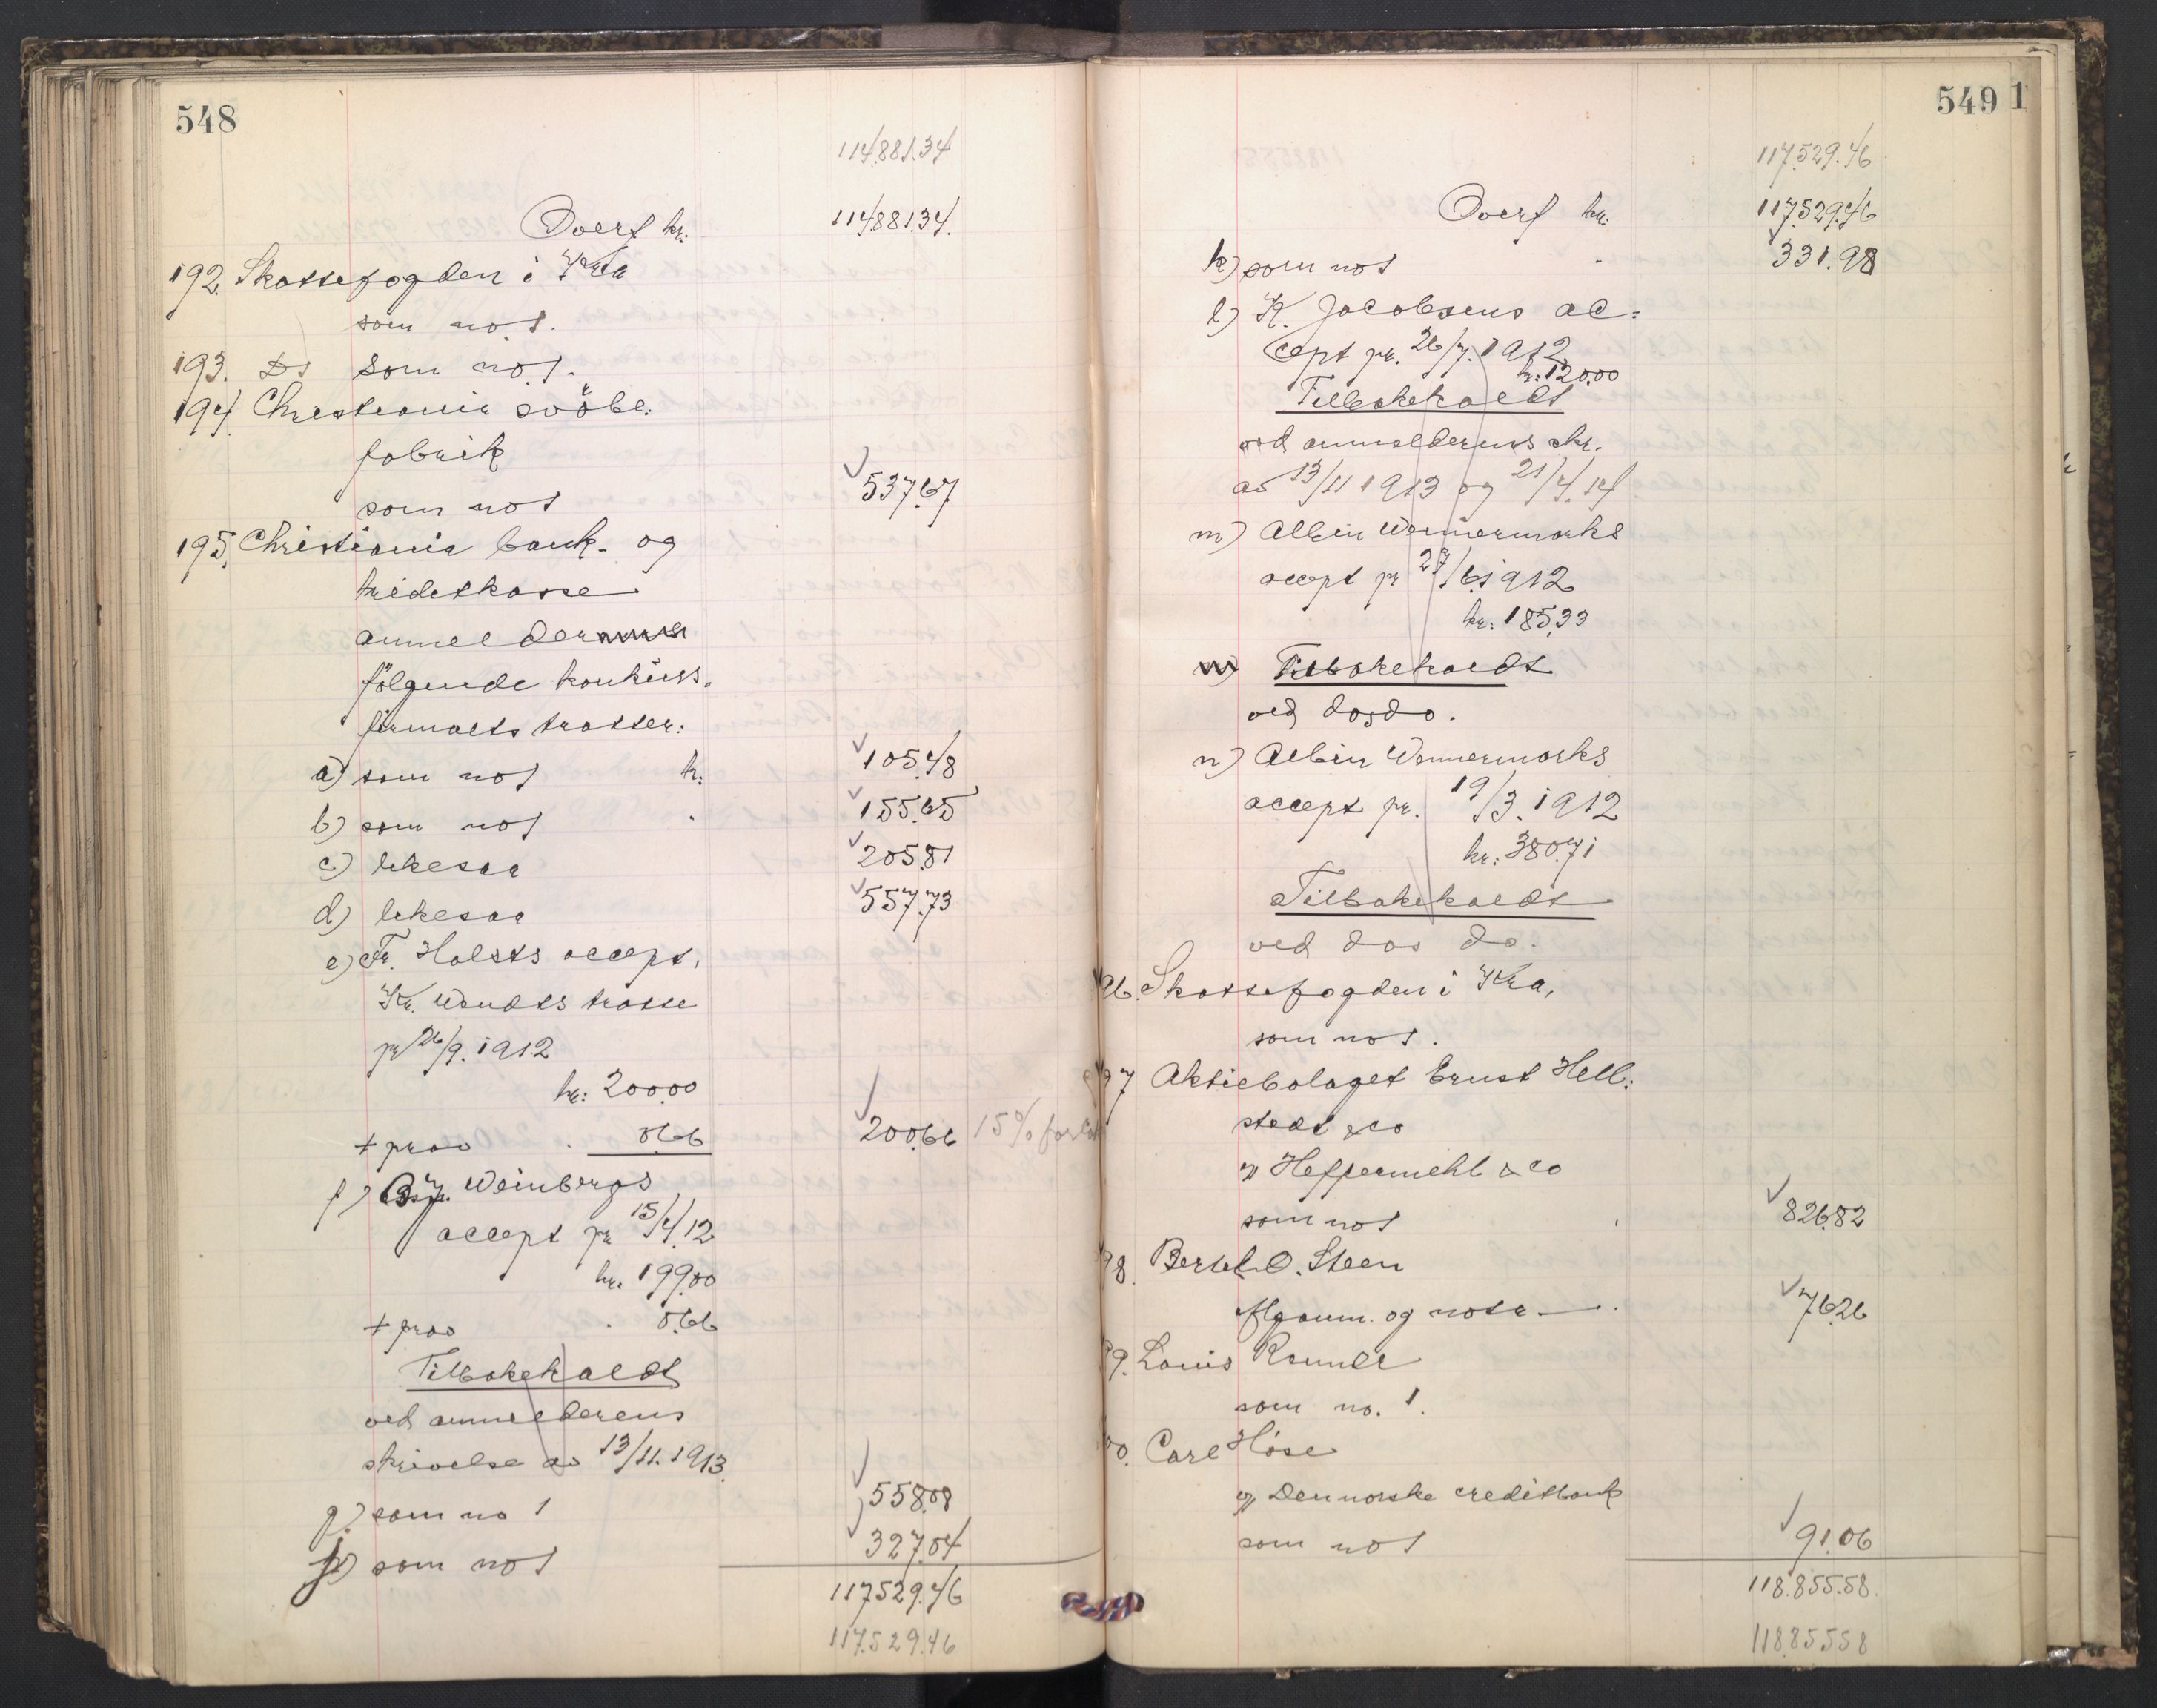 548
114.881.34
Overf kr. 114881.34.
192. Skattefogden i Kra
som no 1.
193. Ds som no 1.
194. Christiania svøbe-
fabrik
som no 1 537.67
195. Christiania bank- og
kreditkasse
anmelder
følgende konkurs-
firmaets tratter:
a) som no 1 kr: 105.48
b) som no 1 155.65
c) likesaa 205.81
d) likesaa 557.73
e) Fr. Holsts accept,
Kr. Wendts tratte
pr 26/9. 1912
kr: 200.00
+ prov 0.66 200.66 15%
f) Weinbergs
accept pr 15/4.12
kr. 199.00
+ prov 0.66
Tilbakekaldt
ved anmelderens
skrivelse av 13/11. 1913.
g) som no 1 558.08
som no 1 327.04
117529.46
117.529.46
549 1
117.529.46
Overf kr. 117.529.46
k) som no 1 331.98
l) K. Jacobsens ac-
cept pr. 26/7. 1912
kr: 120.00
Tilbakekaldt
ved anmelderens skr.
av 13/11 1913 og 21/4.14
m) Albin Wennermarks
accept pr 27/6.1912
kr: 185.33
Tilbakekaldt
ved dos do.
n) Albin Wennermarks
accept pr. 19/3. 1912
kr: 380.71
Tilbakekaldt
ved dos do.
96. Skattefogden i Kra,
som no 1.
97 Aktiebolaget Ernst Hell-
stedt & co
v/ Heffermehl & co
som no 1 826.82
98. Bertel O. Steen
og nota 76.26
99. Louis
som no. 1.
00. Carl Höse
v/ Den norske creditbank
som no 1 91.06
118.855.58.
118.855.58